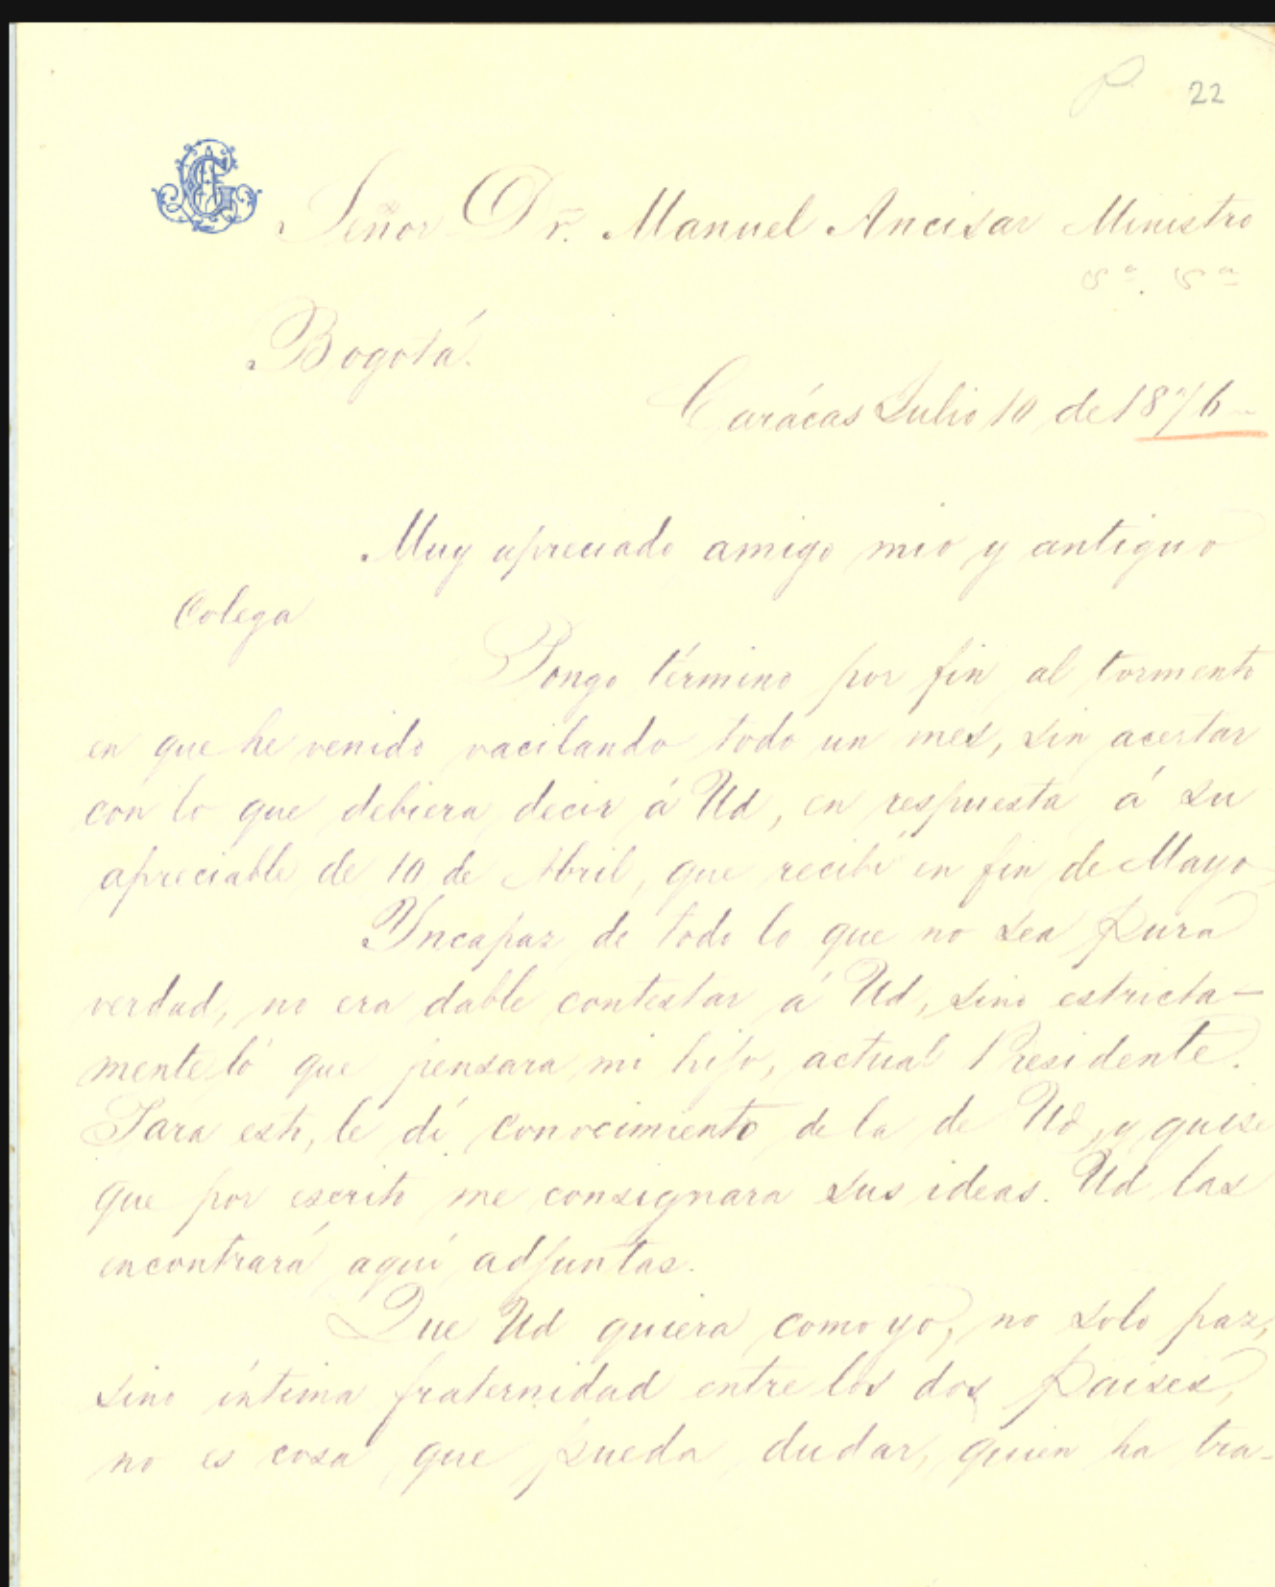 22
Señor Dr. Manuel Ancisar Ministro
Bogotá.
Carácas Julio 10 de 1876
Muy apreciado amigo mio y antiguo
Colega
Pongo término por fin al tormento
en que he venido vacilando todo un mes, sin acertar
con lo que debiera decir á Ud, en respuesta á su
apreciable de 10 de Abril, que recibí en fin de Mayo
Yncapaz de todo lo que no sea pura
verdad, no era dable contestar á Ud, sino estricta-
mente lo que pensara mi hijo, actual Presidente.
Para esto, le dí conocimiento de la de Ud, y quise
que por escrito me consignara sus ideas. Ud las
encontrará aquí adjuntas.
Que Ud quiera como yo, no solo paz,
sino íntima fraternidad entre los dos paises,
no es cosa que pueda dudar, quien ha tra-